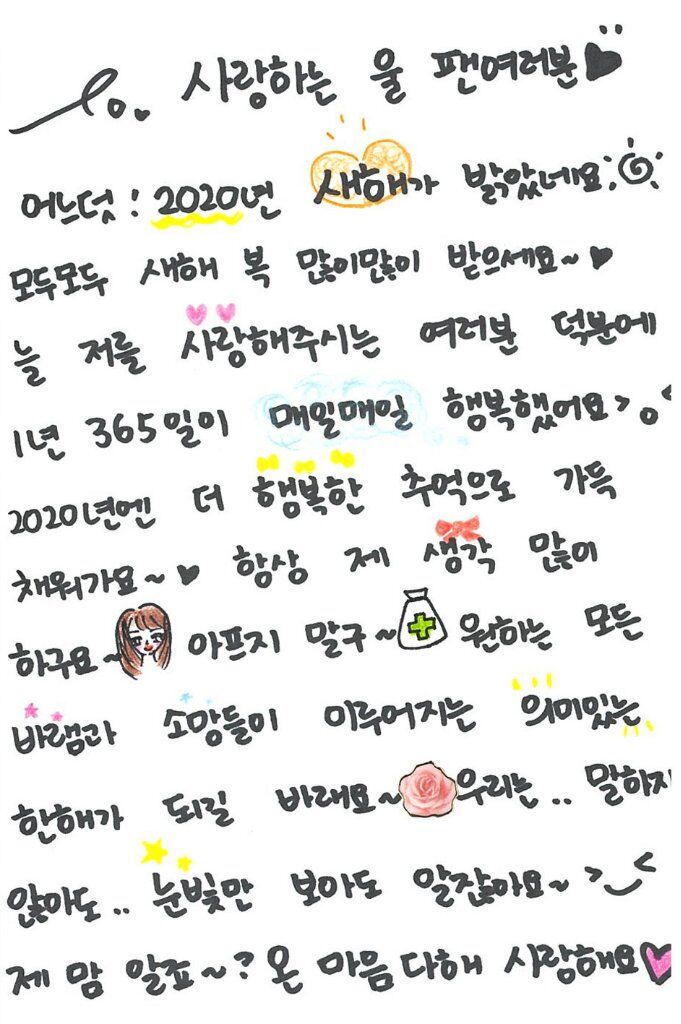 To. 사랑하는 울 팬여러분♥
어느덧! 2020년 새해가 밝았네요
모두모두 새해 복 많이많이 받으세요~♥
늘 저를 사랑해주시는 여러분 덕분에
1년 365일이 매일매일 행복했어요>。<
2020년엔 더 행복한 추억으로 가득
채워가요~♥ 항상 제 생각 많이
하구요~ 아프지 말구~ 원하는 모든
바램과 소망들이 이루어지는 의미있는
한해가 되길 바래요~ 우리는.. 말하지
않아도.. 눈빛만 보아도 알잖아요~ >‿<
제 맘 알죠~? 온 마음 다해 사랑해요